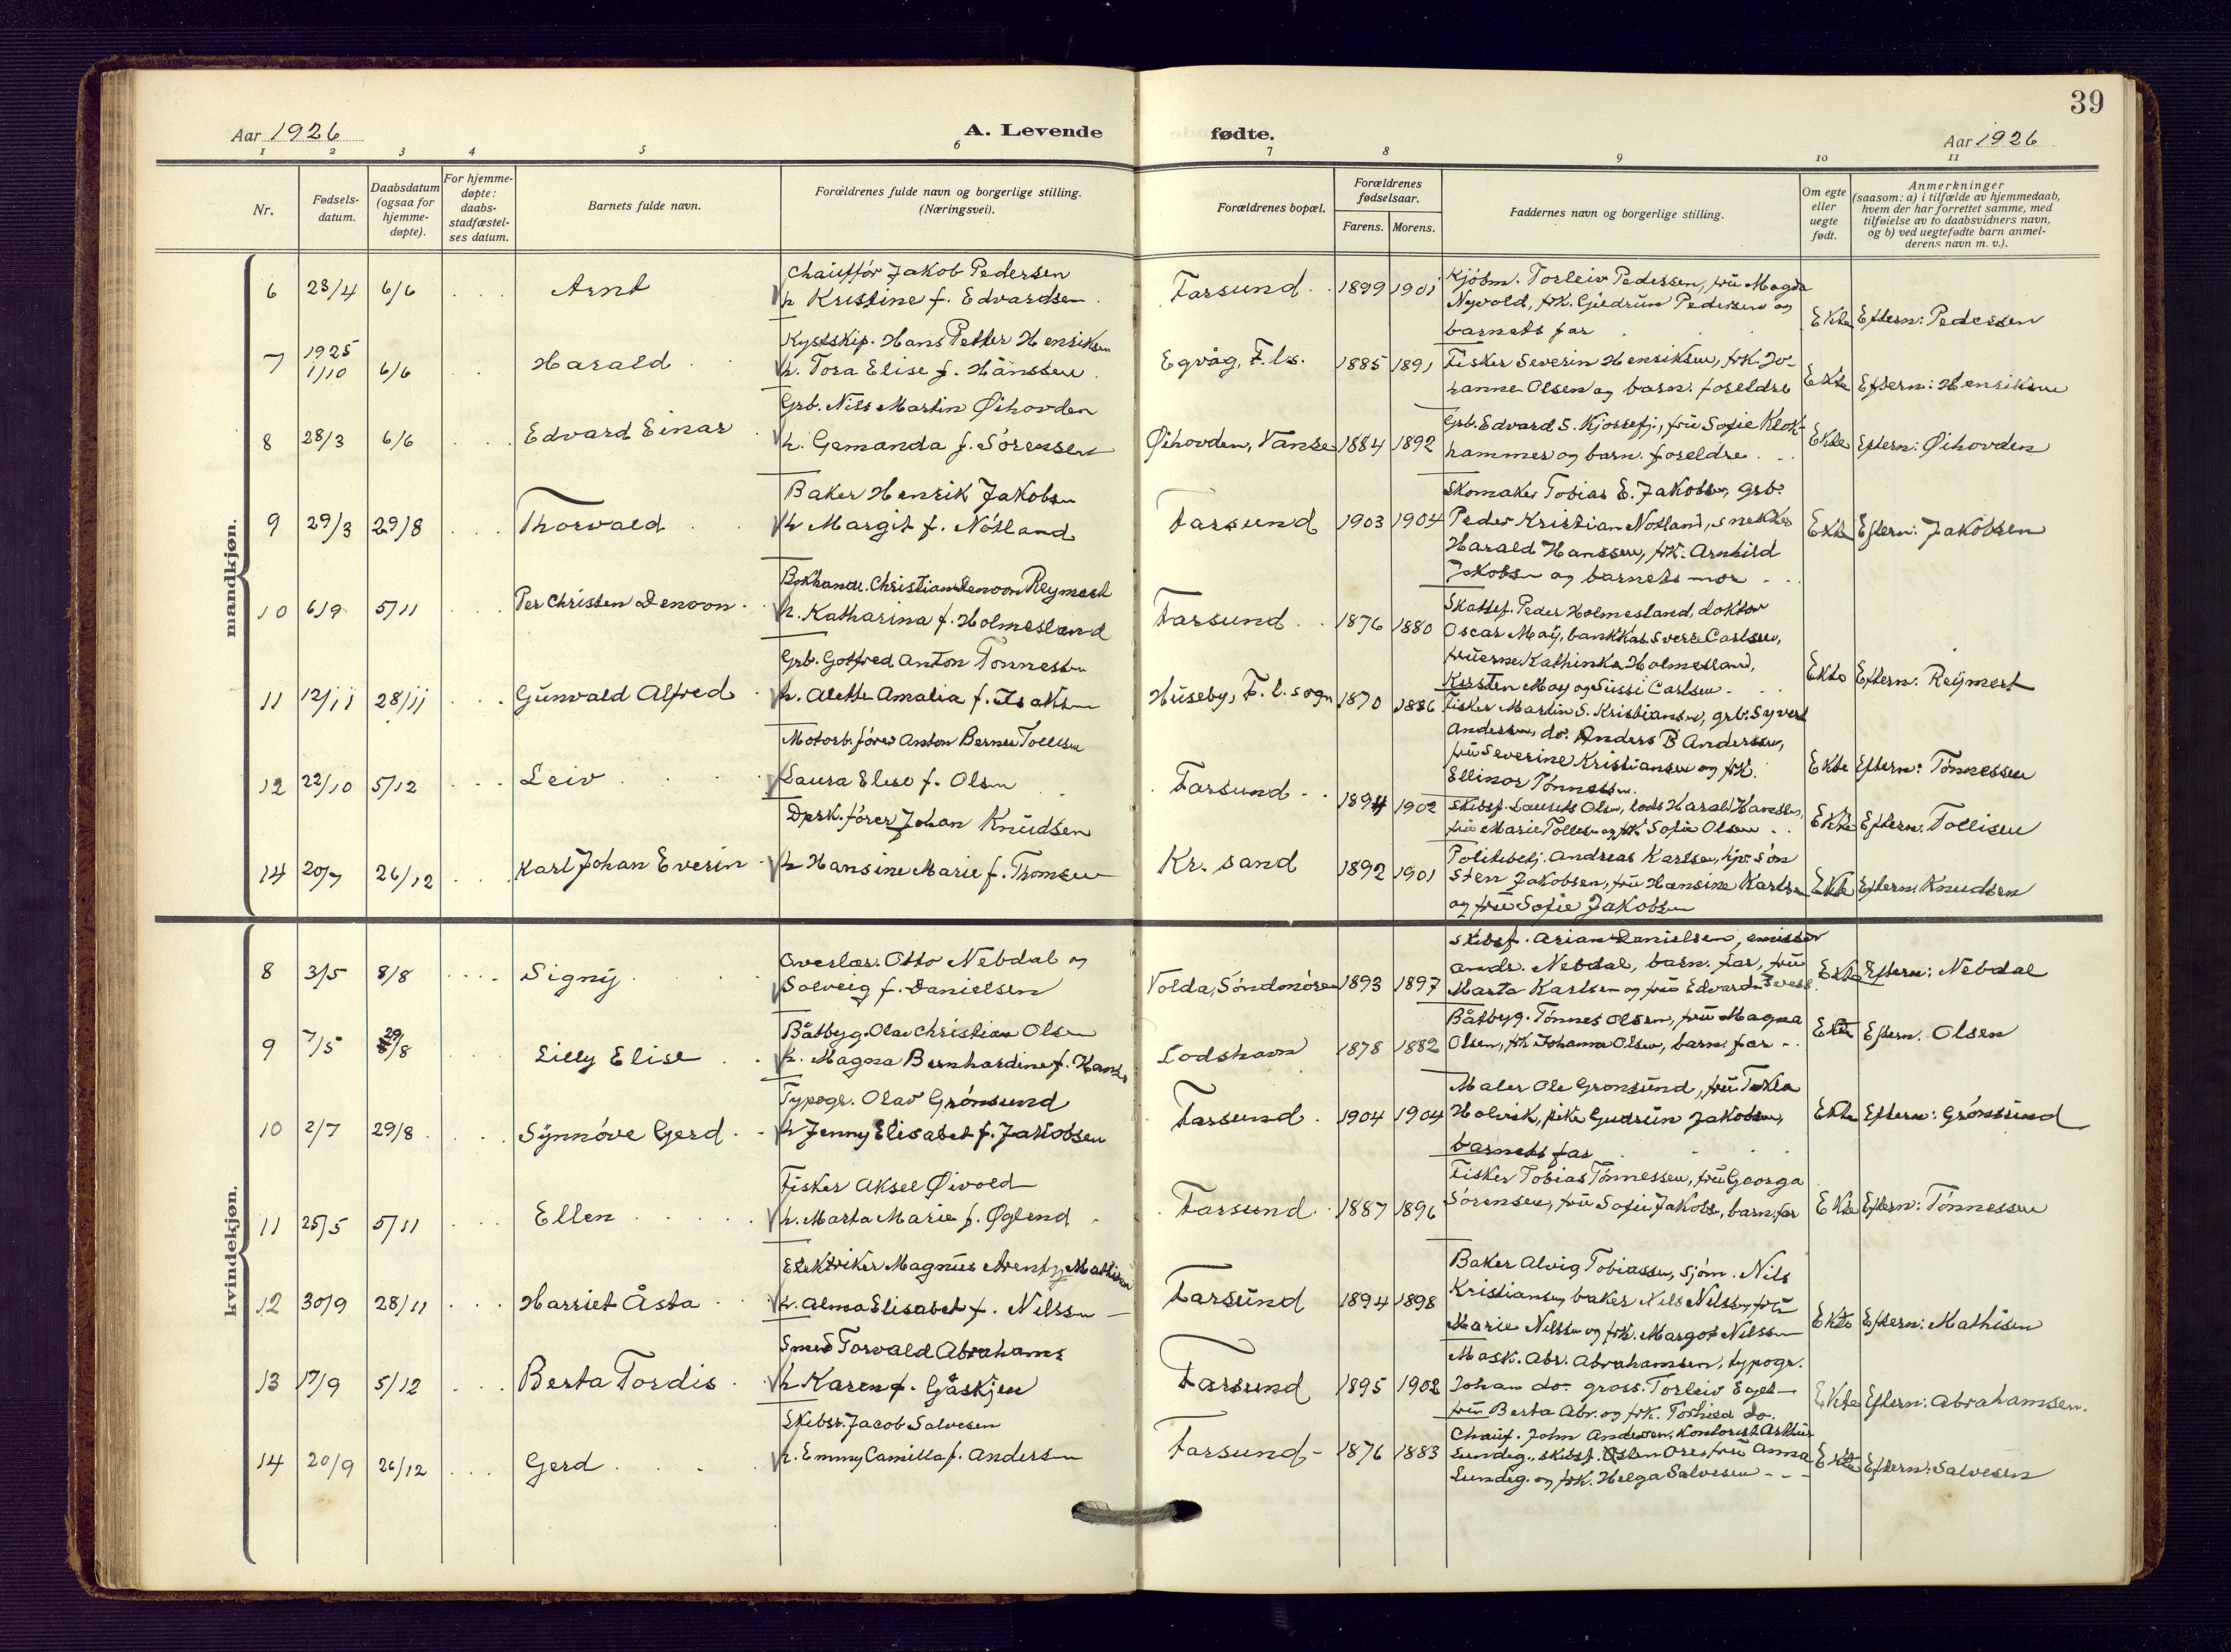 39
Aar 1926
A. Levende fødte.
Aar 1926
1 2 3 4 5 6 7 8 9 10 11
Nr.
Fødsels-
datum.
Daabsdatum
(ogsaa for
hjemme-
døpte).
For hjemme-
døpte:
daabs-
stadfæstel-
ses datum.
Barnets fulde navn.
Forældrenes fulde navn og borgerlige stilling.
(Næringsvei).
Forældrenes bopæl.
Forældrenes
fødselsaar.
Farens. Morens.
Faddernes navn og borgerlige stilling.
Om egte
eller
uegte
født.
Anmerkninger
(saasom: a) i tilfælde av hjemmedaab,
hvem der har forrettet samme, med
tilføielse av to daabsvidners navn,
og b) ved uegtefødte barn anmel-
derens navn m. v.).
mandkjøn.
6 23/4 6/6 Arnt
Chauffør Jakob Pedersen
h. Kristine f. Edvardsen
Farsund 1899 1901
Kjöbm. Torleiv Pedersen, frü Magda
Nyvold, frk. Güdrün Pedersen og
barnets far
Ekte Eftern: Pedersen
7 1925 1/10 6/6 Harald
Kystskip. Hans Petter Henriksen
h. Tora Elise f. Hanssen
Egvåg, F. ls. 1885 1891
Fisker Severin Henriksen, frk. Jo-
hanne Olsen og barn. foreldre
Ekte Eftern: Henriksen
8 28/3 6/6 Edvard Einar
Grb. Nils Martin Øihovden
h. Gemanda f. Sörensen
Øihovden, Vanse 1884 1892
Grb. Edvard S. Kjørrefj., frü Sofie Klok-
hammer og barn. foreldre
Ekte Eftern: Øihovden
9 29/3 29/8 Thorvald
Baker Henrik Jakobsen
h. Margit f. Nötland
Farsund 1903 1904
Skomaker Tobias E. Jakobsen, grb.
Peder Kristian Notland, snekker
Harald Hanssen, frk. Arnhild
Jakobsen og barnets mor
Ekte Eftern: Jakobsen
10 6/9 5/11 Per Christen Denoon
Bokhandl. Christian Denoon Reymert
h. Katharina f. Holmesland
Farsund 1876 1880
Skattef. Peder Holmesland, doktor
Oscar May, bankkas. Sverre Carlsen,
früerne Kathinka Holmesland,
Kirsten May og Sussi Carlsen
Ekte Eftern: Reymert
11 12/11 28/11 Günvald Alfred
Grb. Gotfred Anton Tönnessen
h. Alette Amalia f. Isaksen
Hüseby, F. l. sogn 1870 1886
Fisker Martin S. Kristiansen, grb. Syvert
Andersen, do. Anders B Andersen,
frü Severine Kristiansen og frk.
Ellinor Tönnessen
Ekte Eftern: Tönnessen
12 22/10 5/12 Leiv
Motorb. förer Anton Berner Tollisen
Laura Elise f. Olsen
Farsund 1894 1902
Skibsf. Laurits Olsen, lods Harald Hanssen,
frü Marie Tollesen og frk. Sofie Olsen
Ekte Eftern: Tollisen
14 20/7 26/12 Karl Johan Everin
Dpsk. förer Johan Knüdsen
h. Hansine Marie f. Thomsen
Kr. sand 1892 1901
Politibetj. Andreas Karlsen, hjv. Søn
Sten Jakobsen, frü Hansine Karlsen
og frü Sofie Jakobsen
Ekte Eftern: Knudsen
kvindekjøn.
8 3/5 8/8 Signy
Overlær. Otto Nebdal og
Solveig f. Danielsen
Volda, Söndmöre 1893 1897
Skibsf. Arian Danielsen, emissær
Andr. Nebdal, barn. far, frü
Marta Karlsen og frü Edvardsen
Ekte Eftern: Nebdal
9 7/5 29/8 Lilly Elise
Båtbyg. Olav Christian Olsen
h. Magna Bernhardine f. Hans
Lodshavn 1878 1882
Båtbyg. Tönnes Olsen, frü Magna
Olsen, frk Johanna Olsen, barn. far
Ekte Eftern. Olsen
10 2/7 29/8 Synnöve Gerd
Typogr. Olav Grönsund
h Jenny Elisabet f. Jakobsen
Farsund 1904 1904
Maler Ole Gronsünd, frü Tekla
Holvik, pike Gudrün Jakobsen,
barnets far
Ekte Eftern: Grönsünd
11 25/5 5/11 Ellen
Fisker Aksel Øivold
h. Marta Marie f. Øglend
Farsund 1887 1896
Fisker Tobias Tönnessen, frü Georga
Sörensen, frü Sofie Jakobs, barn. far
Ekte Eftern: Tönnessen
12 30/9 28/11 Harriet Åsta
Elektriker Magnus Arentz Mathisen
h. Alma Elisabet f. Nilssen
Farsünd 1894 1898
Baker Alvig Tobiassen, sjöm. Nils
Kristiansen, baker Nils Nilssen, frü
Marie Nilssen og frk. Margot Nilssen
Ekte Eftern: Mathisen
13 17/9 5/12 Berta Tordis
Smed Torvald Abrahams
h Karen f. Gåskjen
Farsund 1895 1902
Mask. Abr. Abrahamsen, typogr.
Johan do. gross. Torleiv Eget
frü Berta Abr. og frk. Torhild do.
Ekte Eftern: Abrahamsen.
14 20/9 26/12 Gerd
Skibsr. Jacob Salvesen
h. Emmy Camilla f. Andersen
Farsund 1876 1883
Chauf. John Andersen, Kontorist Arthur
Lundeg., skibsf. Østen Ore, frü Anna
Lundeg. og frk. Helga Salvesen
Ekte Eftern: Salvesen